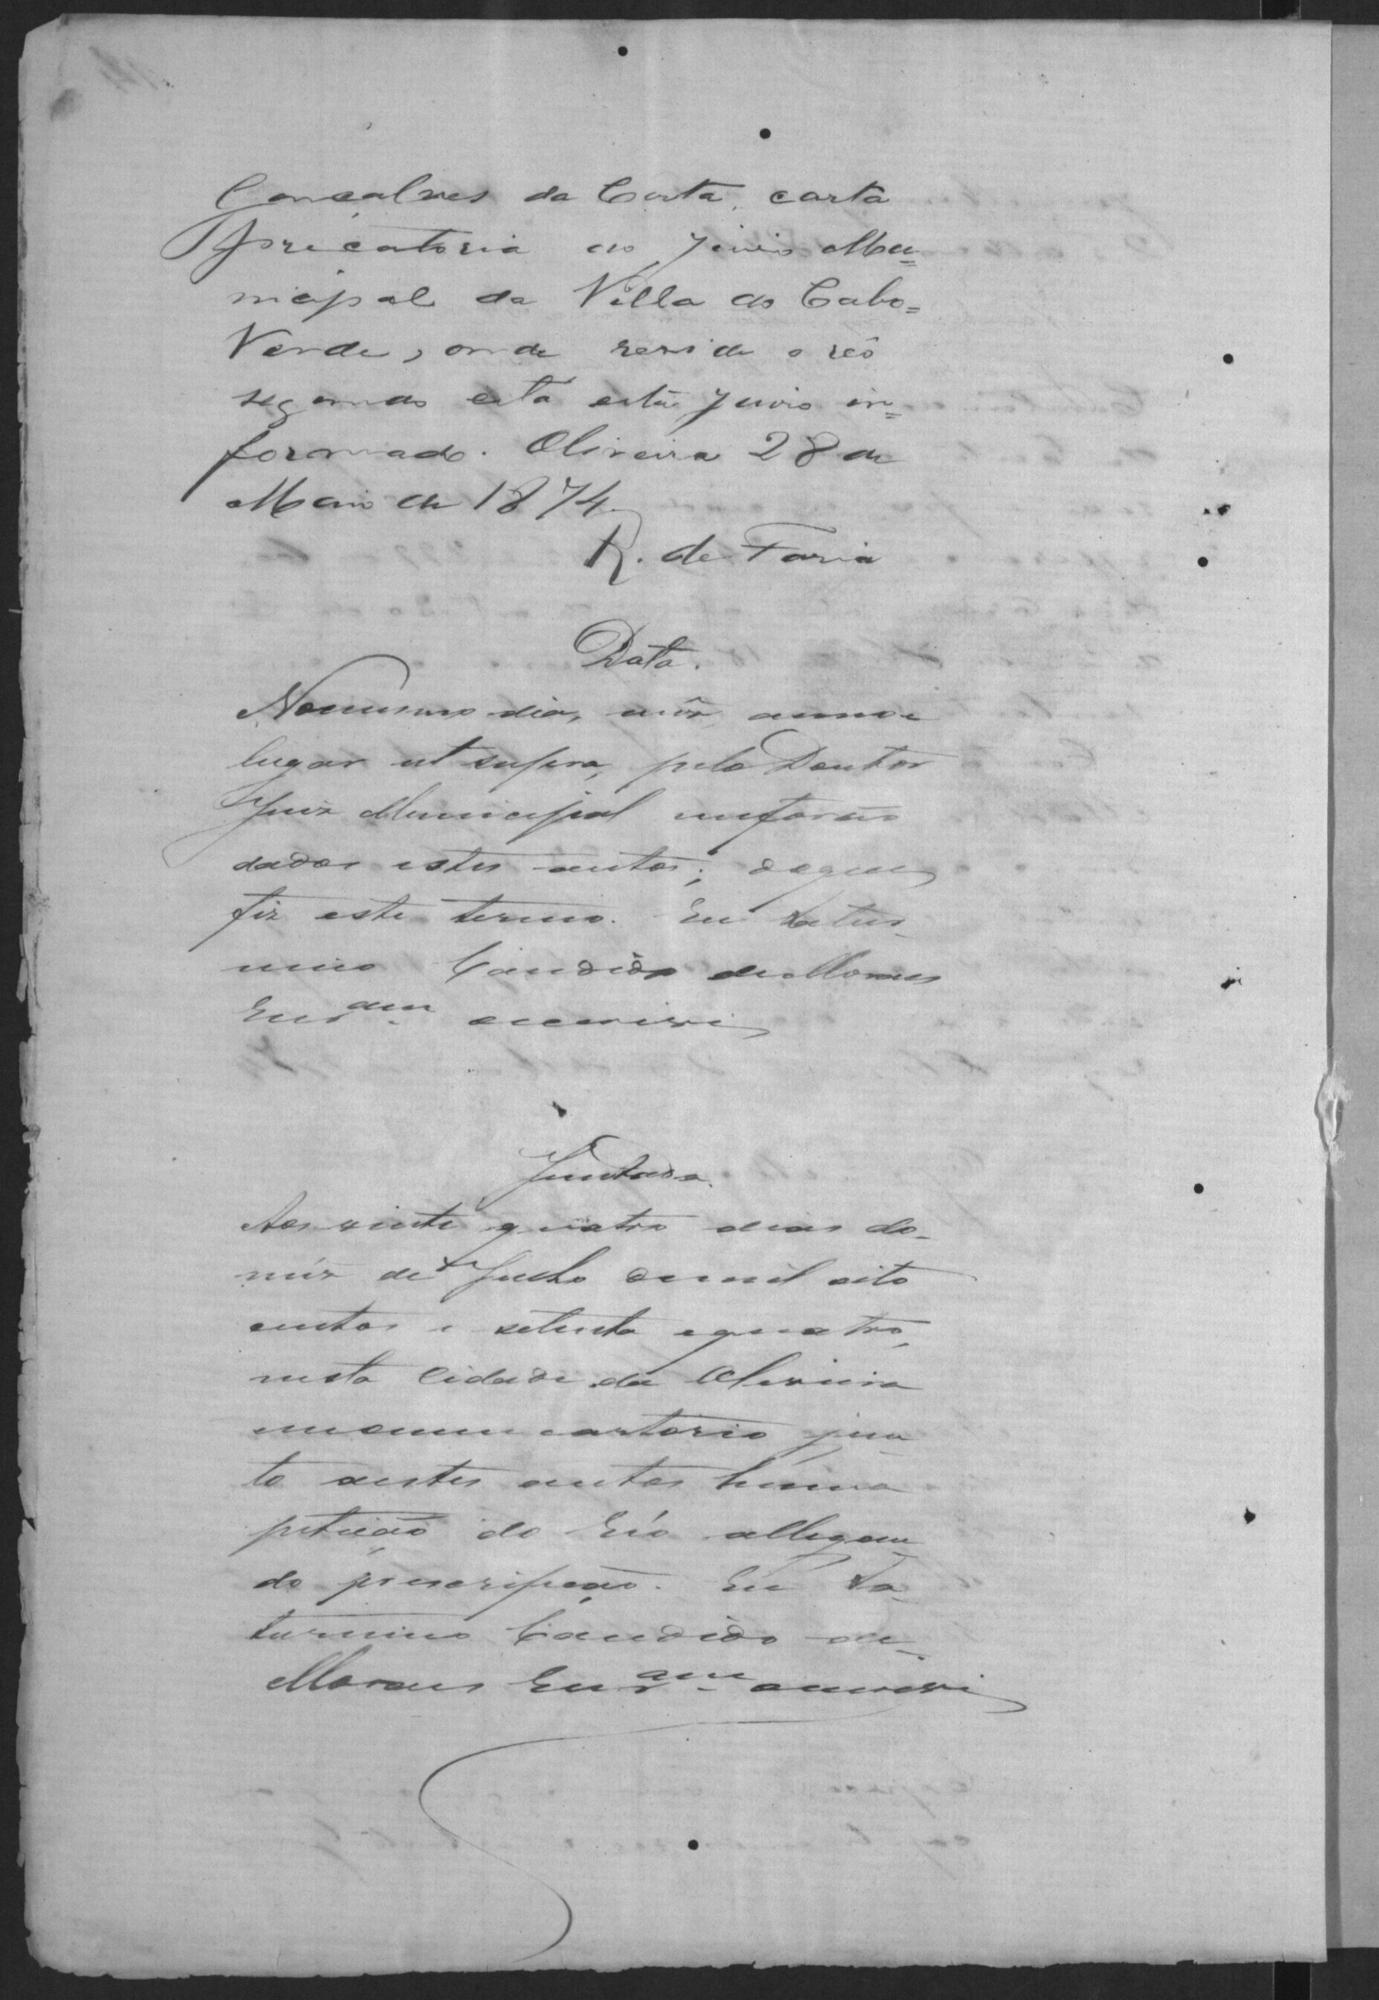 Gonçalves da Costa, carta
precatoria ao Juiso Mu=
nicipal da Villa do Cabo=
Verde, onde reside o réo
segundo está este Juiso in=
formado. Oliveira 28 de
Maio de 1874.
R. de Faria
Data.
No mesmo dia, mês, anno e
lugar ut supra, pelo Doutor
Juiz Municipal me forão
dados estes autos; do que
fiz este termo. Eu Satur-
nino Candido de Moraes
Escr.am escrevi
Juntada.
Aos vinte quatro dias do-
mêz de Julho de mil oito
centos e setenta e quatro,
nesta Cidade da Oliveira
em o meu cartorio jun-
to a estes autos huma
petição do Réo allegan-
do prescripção. Eu Sa-
turnino Candido de-
Moraes Escr.am escrevi